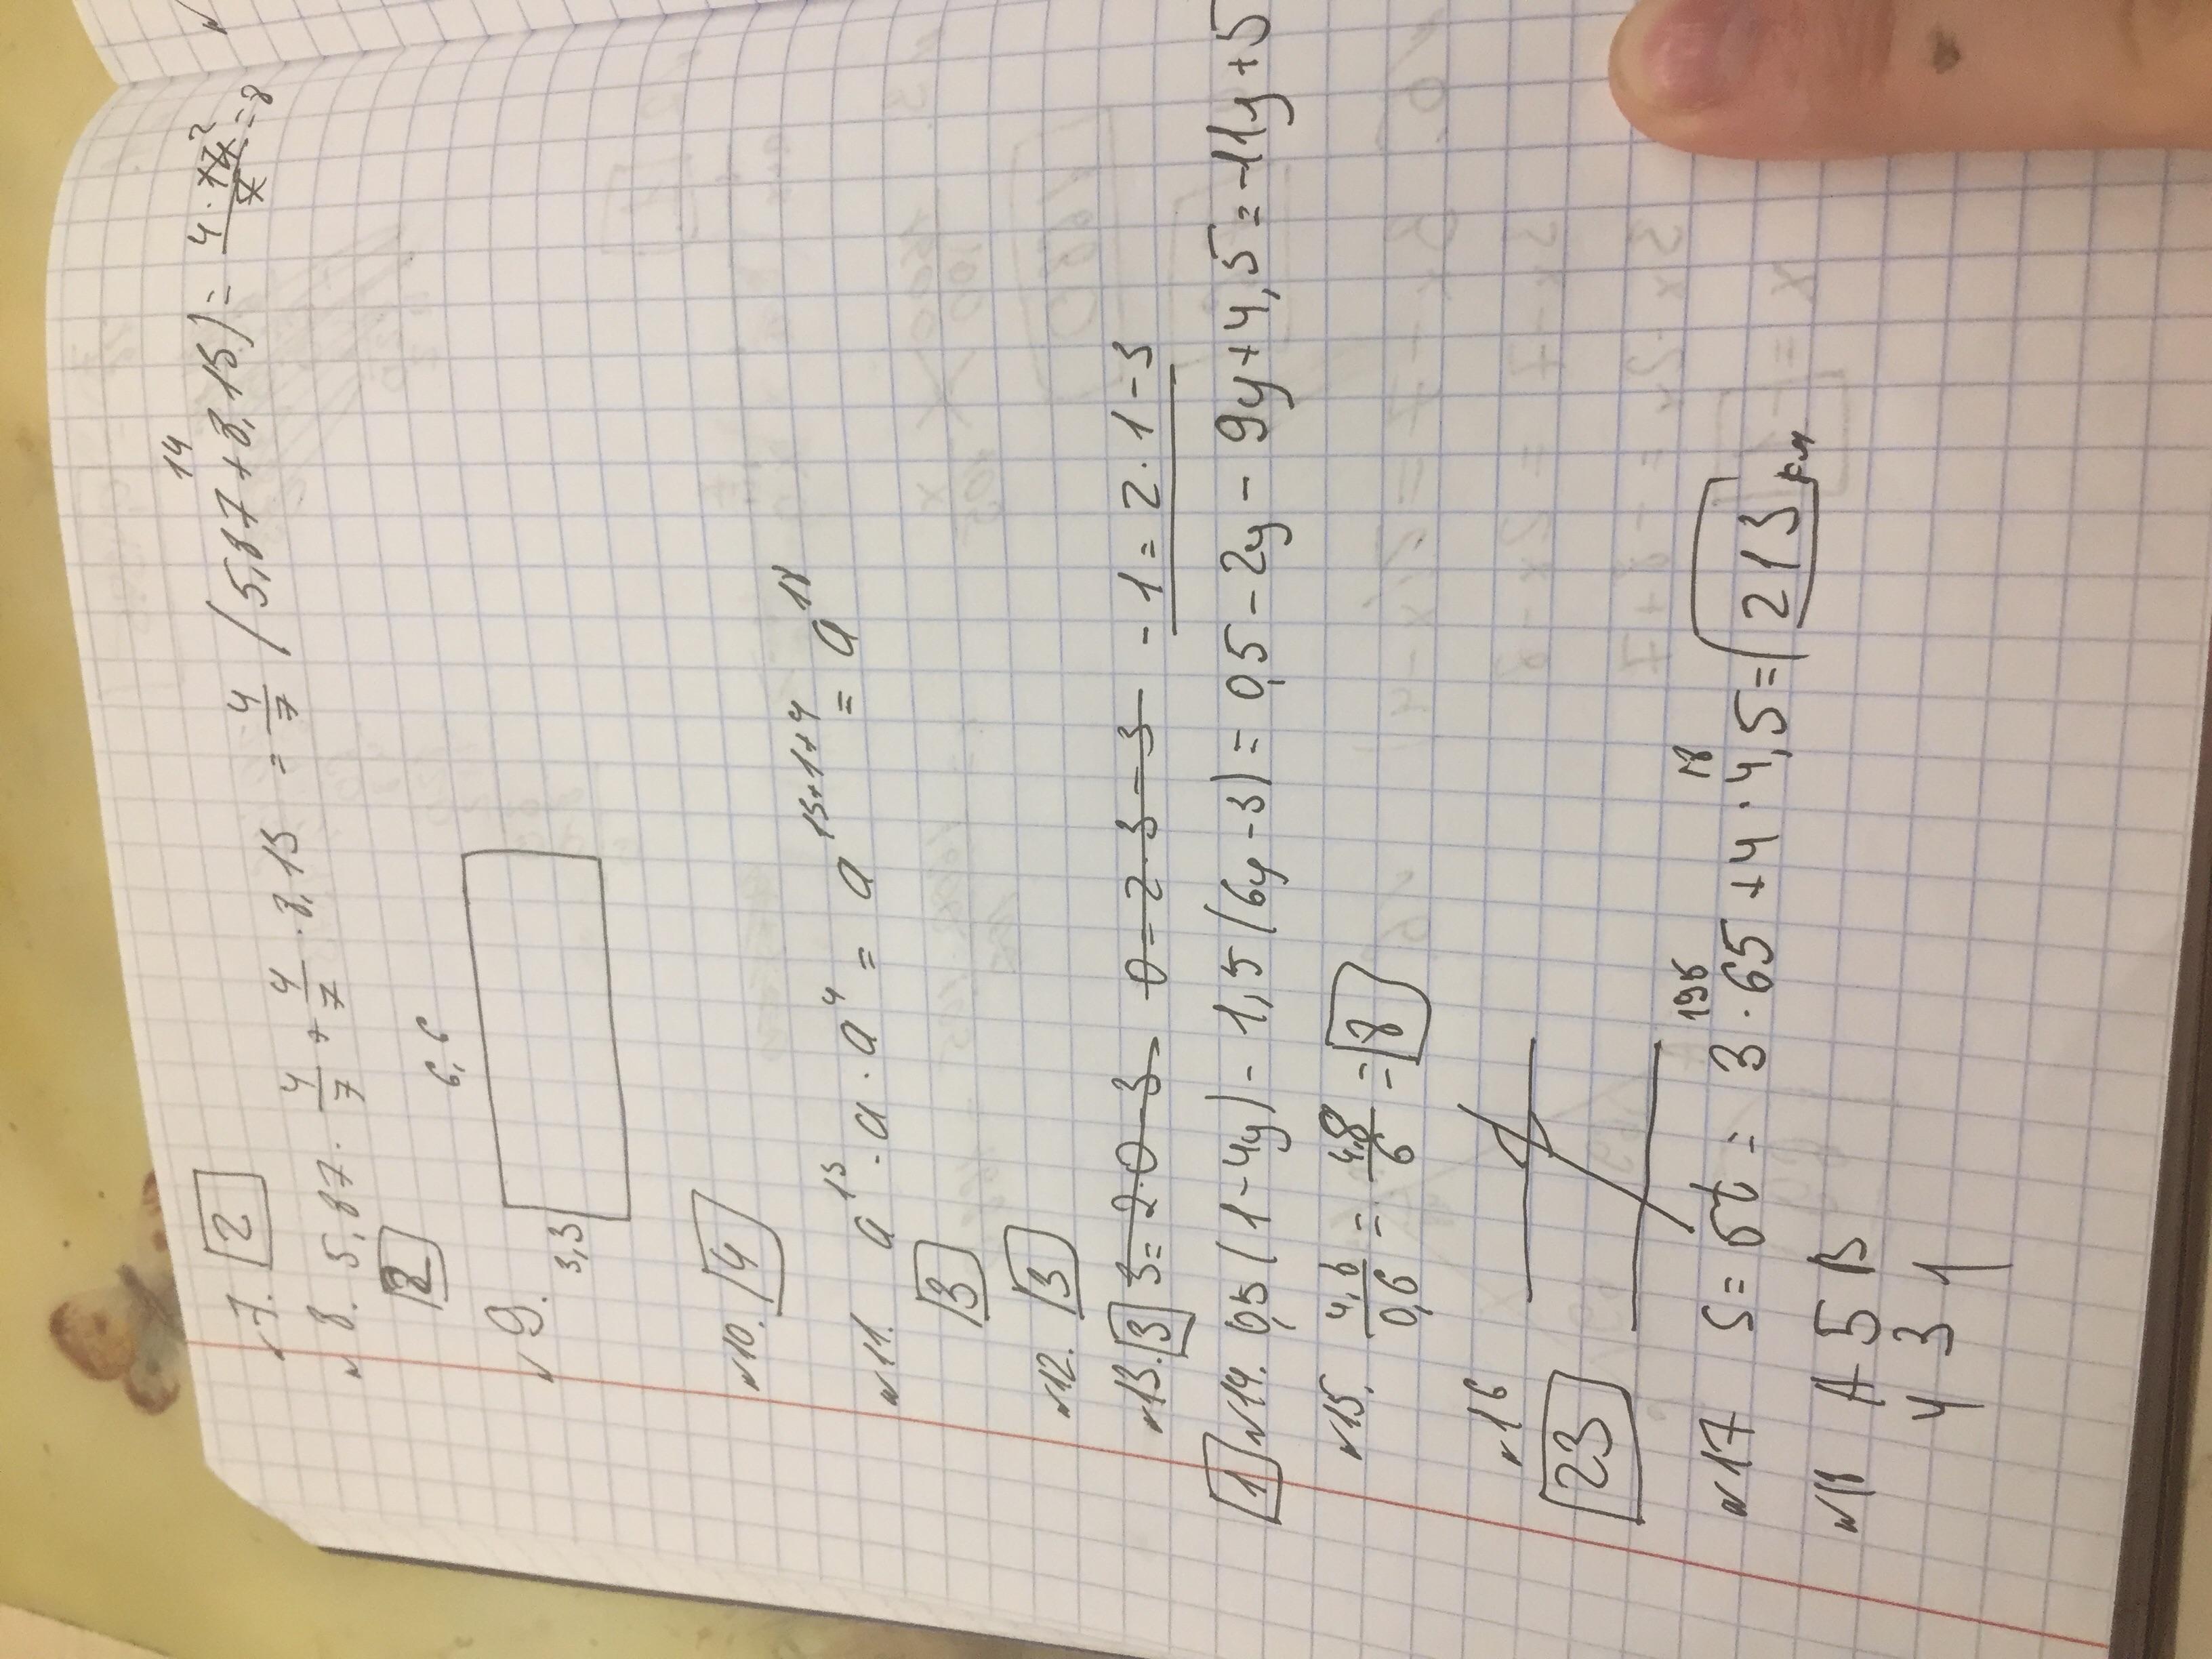 №7. 2
№8. 5,87 · 4/7 + 4/7 · 8,15 = 4/7 (5,87 + 8,15) = 4 · 14/7 = 8
14
2
2
6,6
№9.
3,3
№10. 4
№11. a^13 · a · a^4 = a^13+1+4 = a^18
3
№12. 3
№13. 3 3 = 2·0-3 0 = 2·3-3 -1 = 2·1-3
1 №14. 0,5(1-4y) - 1,5(6y-3) = 0,5-2y-9y+4,5 = -11y+5
№15. 4,8/0,6 = 48/6 = 8
№16
23
195 18
№17 S = υt = 3·65+4·4,5 = 213 км
№18 А Б В
4 3 1